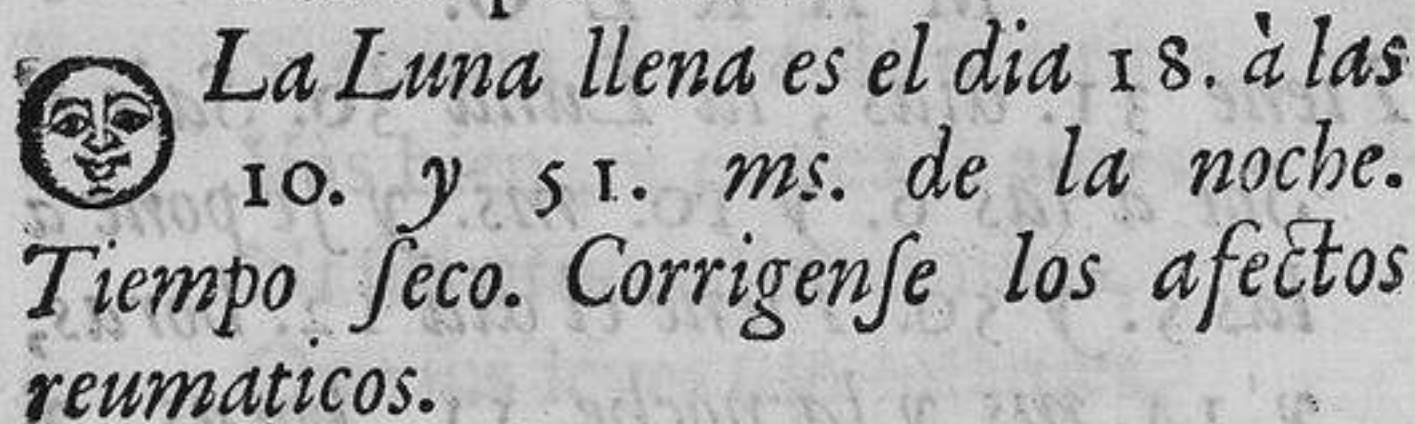 La Luna llena es el dia 18. à las
10. y 51. ms. de la noche.
Tiempo ſeco. Corrigenſe los afectos
reumaticos.